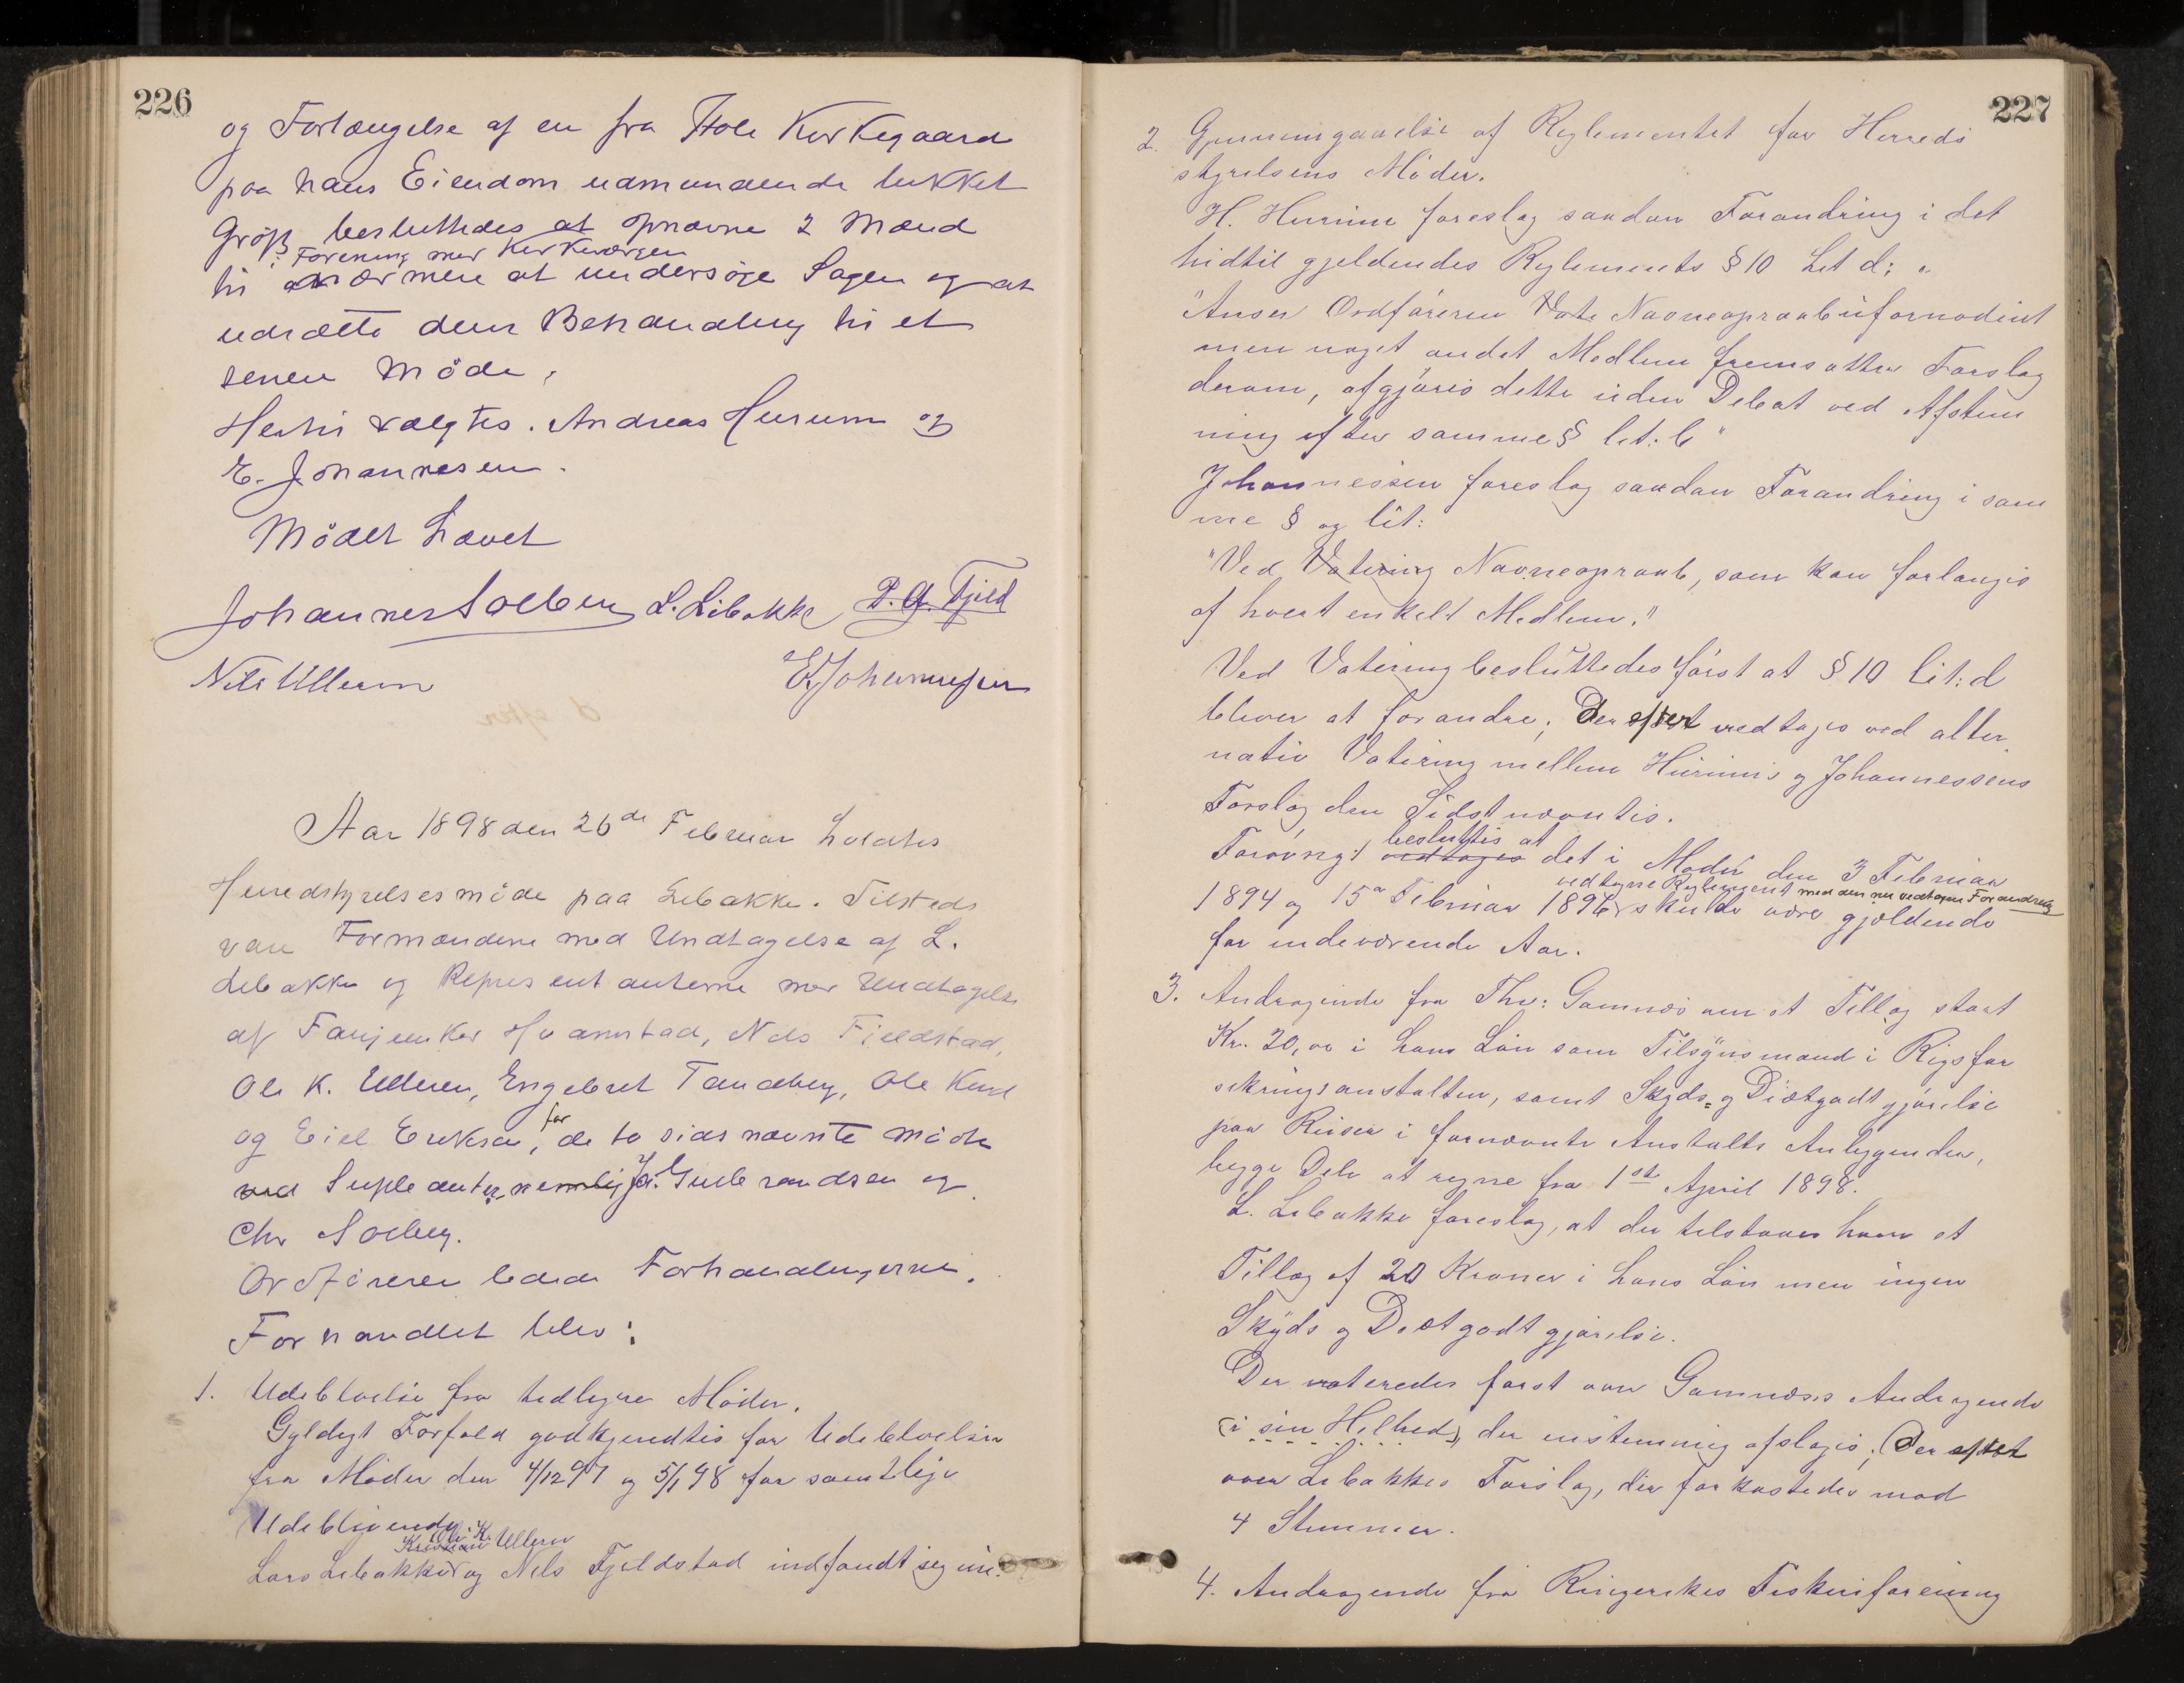 226
og Forlængelse af en fra Hole Kirkegaard
paa hans Eiendom udmundende lukket
Grøft besluttedes at opnævne 2 Mænd
i Forening med Kirkeværgen
til nærmere at undersøge Sagen og at
udsætte dens Behandling til et
senere Møde.
Hertil valgtes. Andreas Hurum og
E. Johannesen.
Mødet hævet
Johannes Solberg L. Libakke P. G. Fjeld
Nils Ullern E. Johannesen
Aar 1898 den 26de Februar holdtes
Herredstyrelsesmøde paa Libakke. Tilstede
vare Formændene med Undtagelse af L.
Libakke og Repræsentanterne med Undtagelse
af Fanjunker Hvamstad, Nils Fjeldstad,
Ole K. Ullern, Engebret Tandberg, Ole
og Eiel Eriksen, for de to sidsnævnte mødte
ved Supleanter, nemlig Gulbrandsen og
Chr Solberg.
Ordføreren ledede Forhandlingerne.
Forhandlet blev:
1. Udeblivelse fra tidligere Møder.
Gyldigt Forfald godkjendtes for Udeblivelsen
fra Møder den 4/12 97 og 5/1 98 for samtlige
Udeblivende.
Ole K. Ullern
Lars Libakke og Nils Fjeldstad indfandt sig nu.
227
2. Gjennemgaaelse af Reglementet for Herreds
styrelsens Møder.
H. Hurum foreslog saadan Forandring i det
hidtil gjeldendes Reglements § 10 Lit d: "
"Anser Ordføreren Vote Navneopraab ufornødent
men noget andet Medlem fremsætter Forslag
derom, afgjøres dette uden Debat ved Afstem
ning efter samme § lit: b"
Johannessen foreslog saadan Forandring i sam
me § og lit:
"Ved Votering Navneopraab, som kan forlanges
af hvert enkelt Medlem."
Ved Votering besluttedes først at § 10 lit: d
bliver at forandre; Derefter vedtoges ved alter
nativ Votering mellem Hurums og Johannessens
Forslag den Sidstnævntes.
besluttes at
Forøvrigt vedtoges det i Møder den 3 Februar
vedtagne Reglement med den nu vedtagne Forandring
1894 og 15de Februar 1896 skulde være gjældende
for indeværende Aar.
3. Andragende fra Thv: Gomnæs om et Tillæg stort
Kr. 20,00 i hans Løn som Tilsynsmand i Rigsfor
sikringsanstalten, samt Skyds- og Diætgodtgjørelse
paa Reiser i fornævnte Anstalts Anliggender,
begge Dele at regne fra 1ste April 1898.
L. Libakke foreslog, at der tilstaaes ham et
Tillæg af 20 Kroner i hans Løn men ingen
Skyds og Diætgodtgjørelse.
Der voteredes først over Gomnæs's Andragende
(i sin Helhed), der enstemmig afsloges; Derefter
over Libakkes Forslag, der forkastedes mod
4 Stemmer.
4. Andragende fra Ringerikes Fiskeriforening